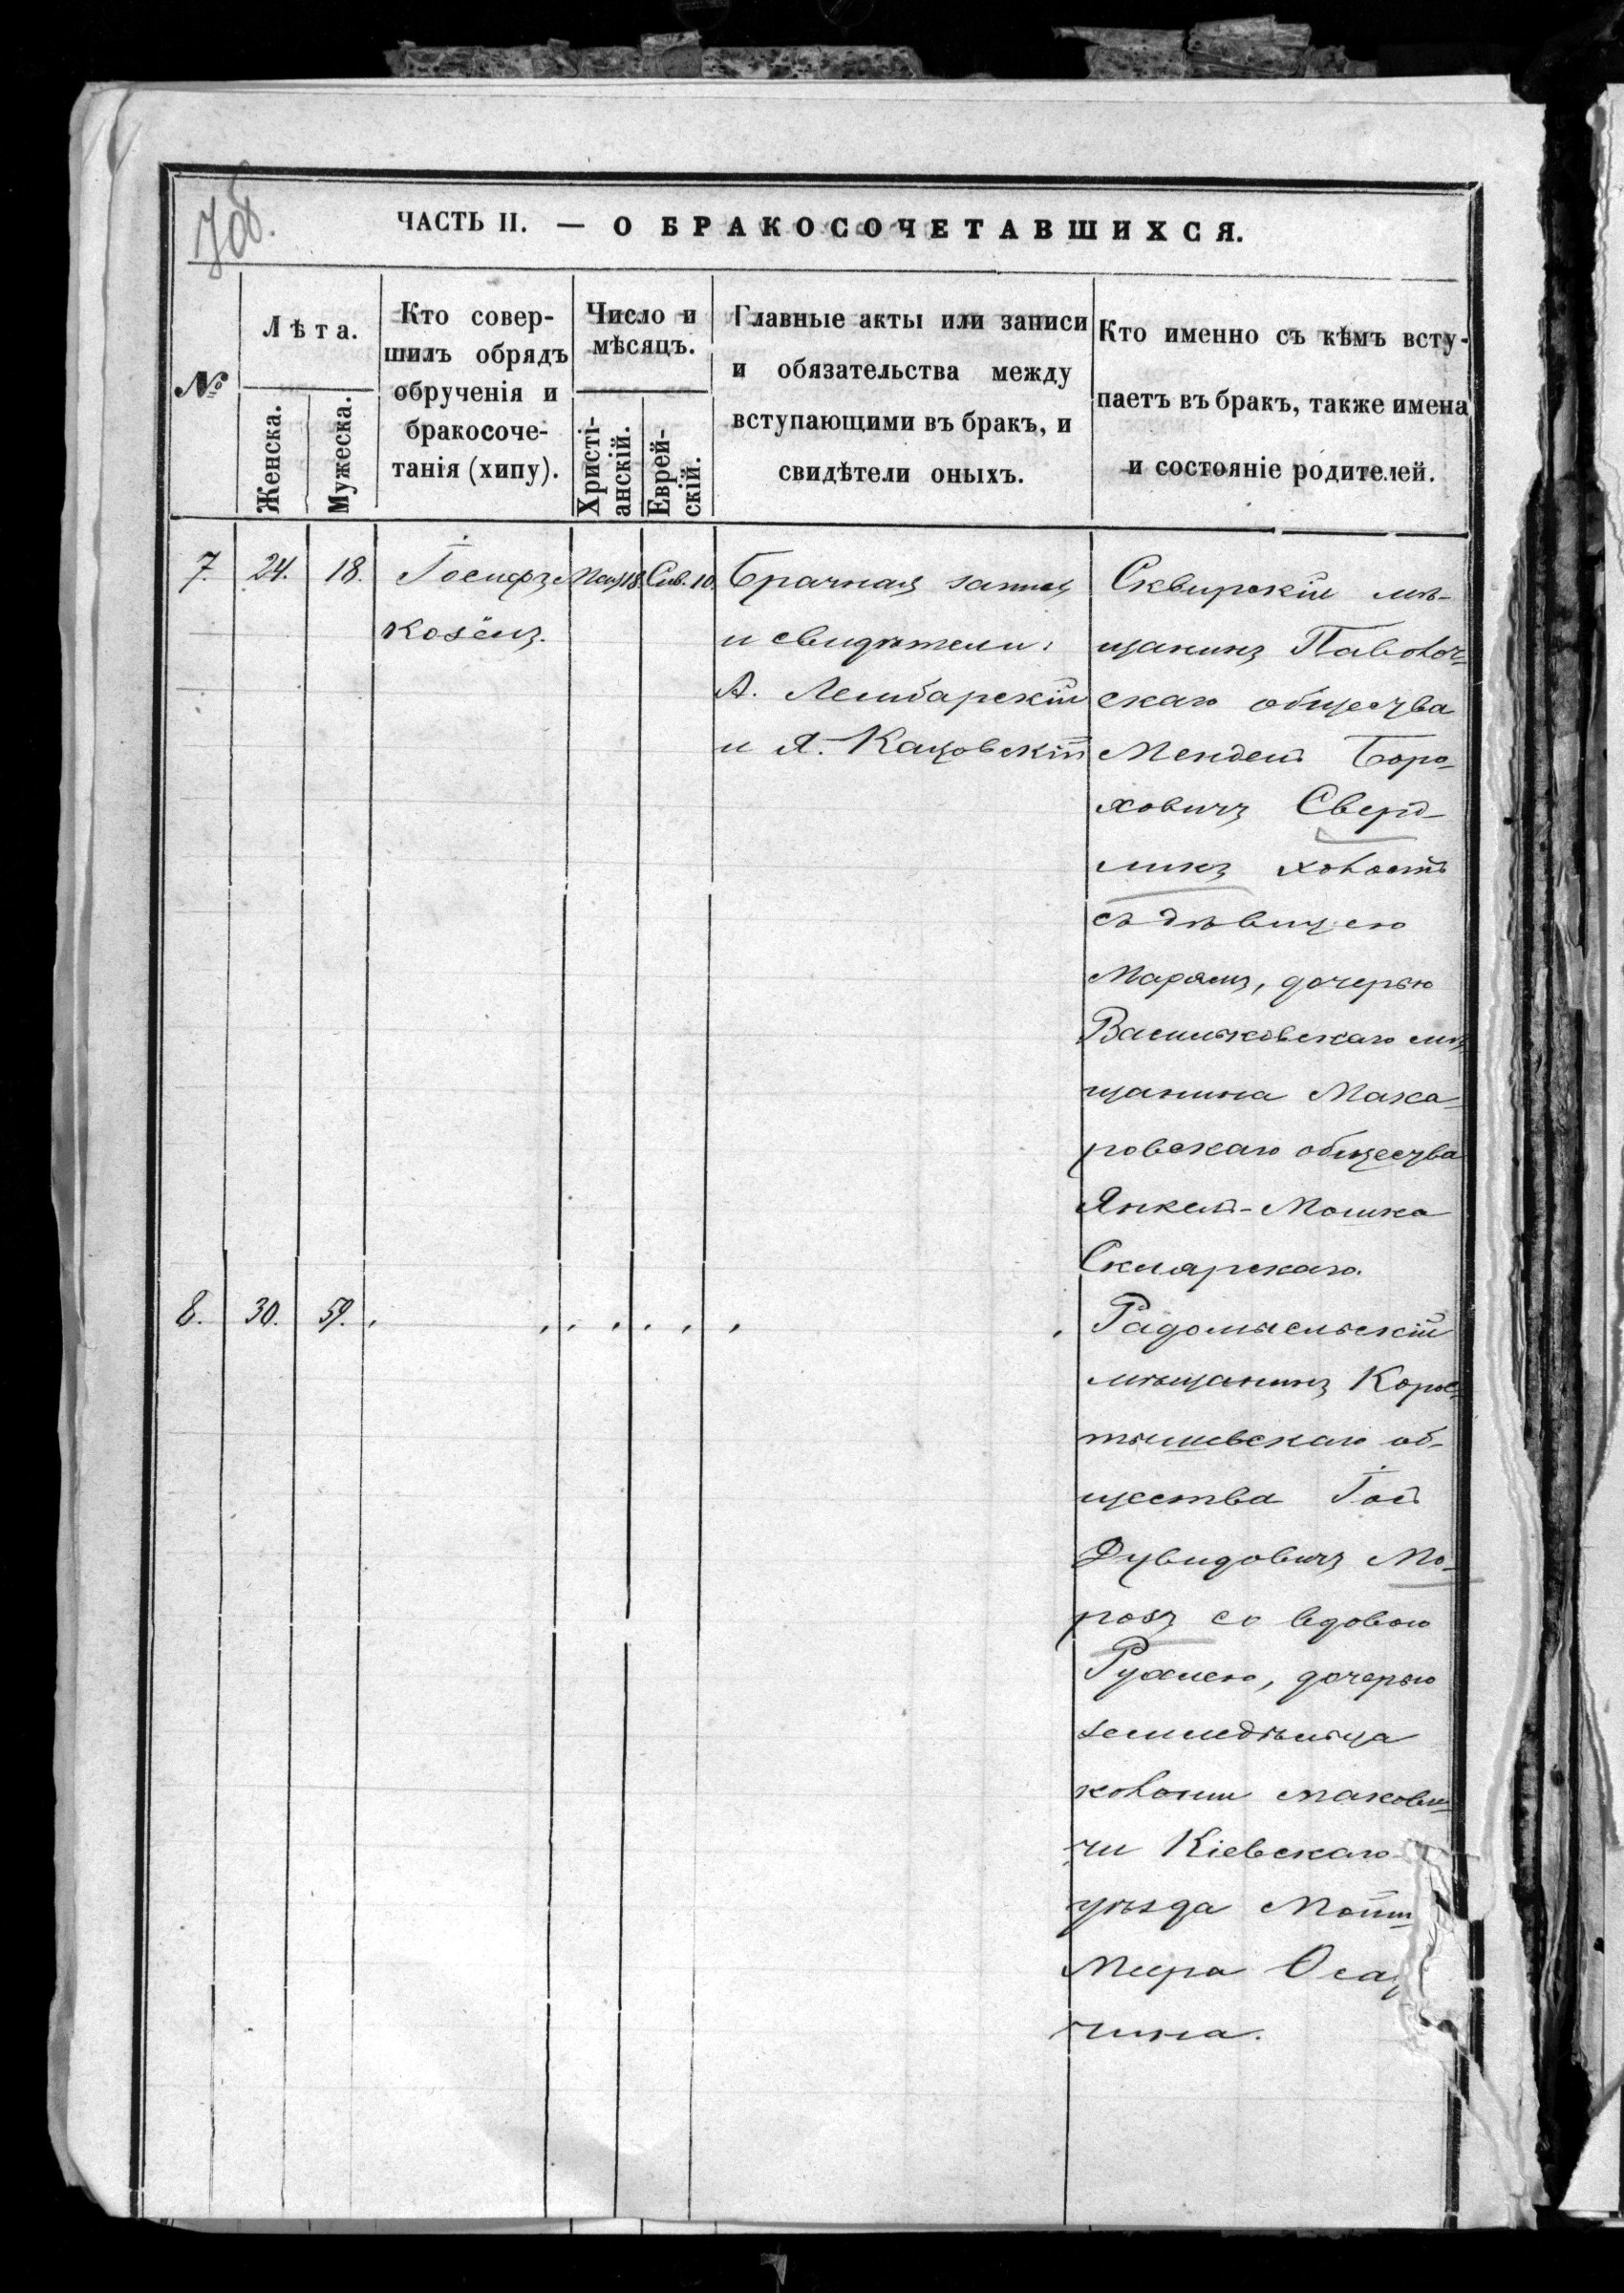 7об.
ЧАСТЬ II. — О БРАКОСОЧЕТАВШИХСЯ.
№
Лѣта.
Женска.
Мужеска.
Кто совер-
шилъ обрядъ
обрученія и
бракосоче-
танія (хипу).
Число и
мѣсяцъ.
Христі-
анскій.
Еврей-
скій.
Главные акты или записи
и обязательства между
вступающими въ бракъ, и
свидѣтели оныхъ.
Кто именно съ кѣмъ всту-
паетъ въ бракъ, также имена
и состояніе родителей.
7. 24. 18.
Іосифъ
Козёлъ.
Мая 18. Сив. 10.
Брачная запись
и свидѣтели:
А. Лембарскій
и Я. Кацовскій
Сквирскій мѣ-
щанинъ Паволоч-
скаго общества
Мендель Боро-
ховичъ Сверд-
ликъ холостъ
съ дѣвицею
Марьямъ, дочерью
Васильковскаго мѣ-
щанина Мака-
ровскаго общества
Янкель-Мошка
Склярскаго.
8. 30. 59.
Радомысльскій
мѣщанинъ Корос-
тышевскаго об-
щества Іос
Дувидовичъ Мо-
розъ со вдовою
Рухлею, дочерью
земледѣльца
колоніи Макови-
чи Кіевскаго
уѣзда
Меера
чина.